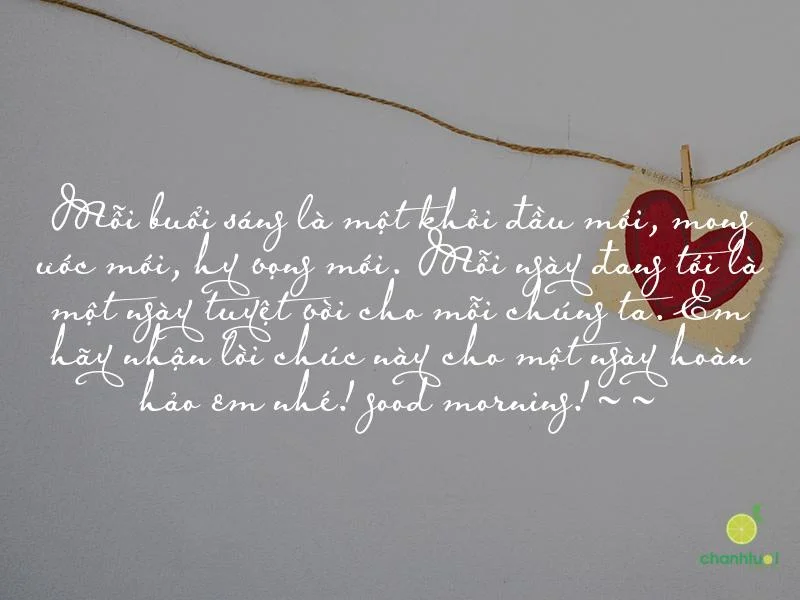 Mỗi buổi sáng là một khỏi đầu mói, mong
uóc mói, hy vọng mói. Mỗi ngày đang tói là
một ngày tuyệt vòi cho mỗi chúng ta. Em
hãy nhận lòi chúc này cho một ngày hoàn
hảo em nhé! good morning! ~ ~
chanhtuoi